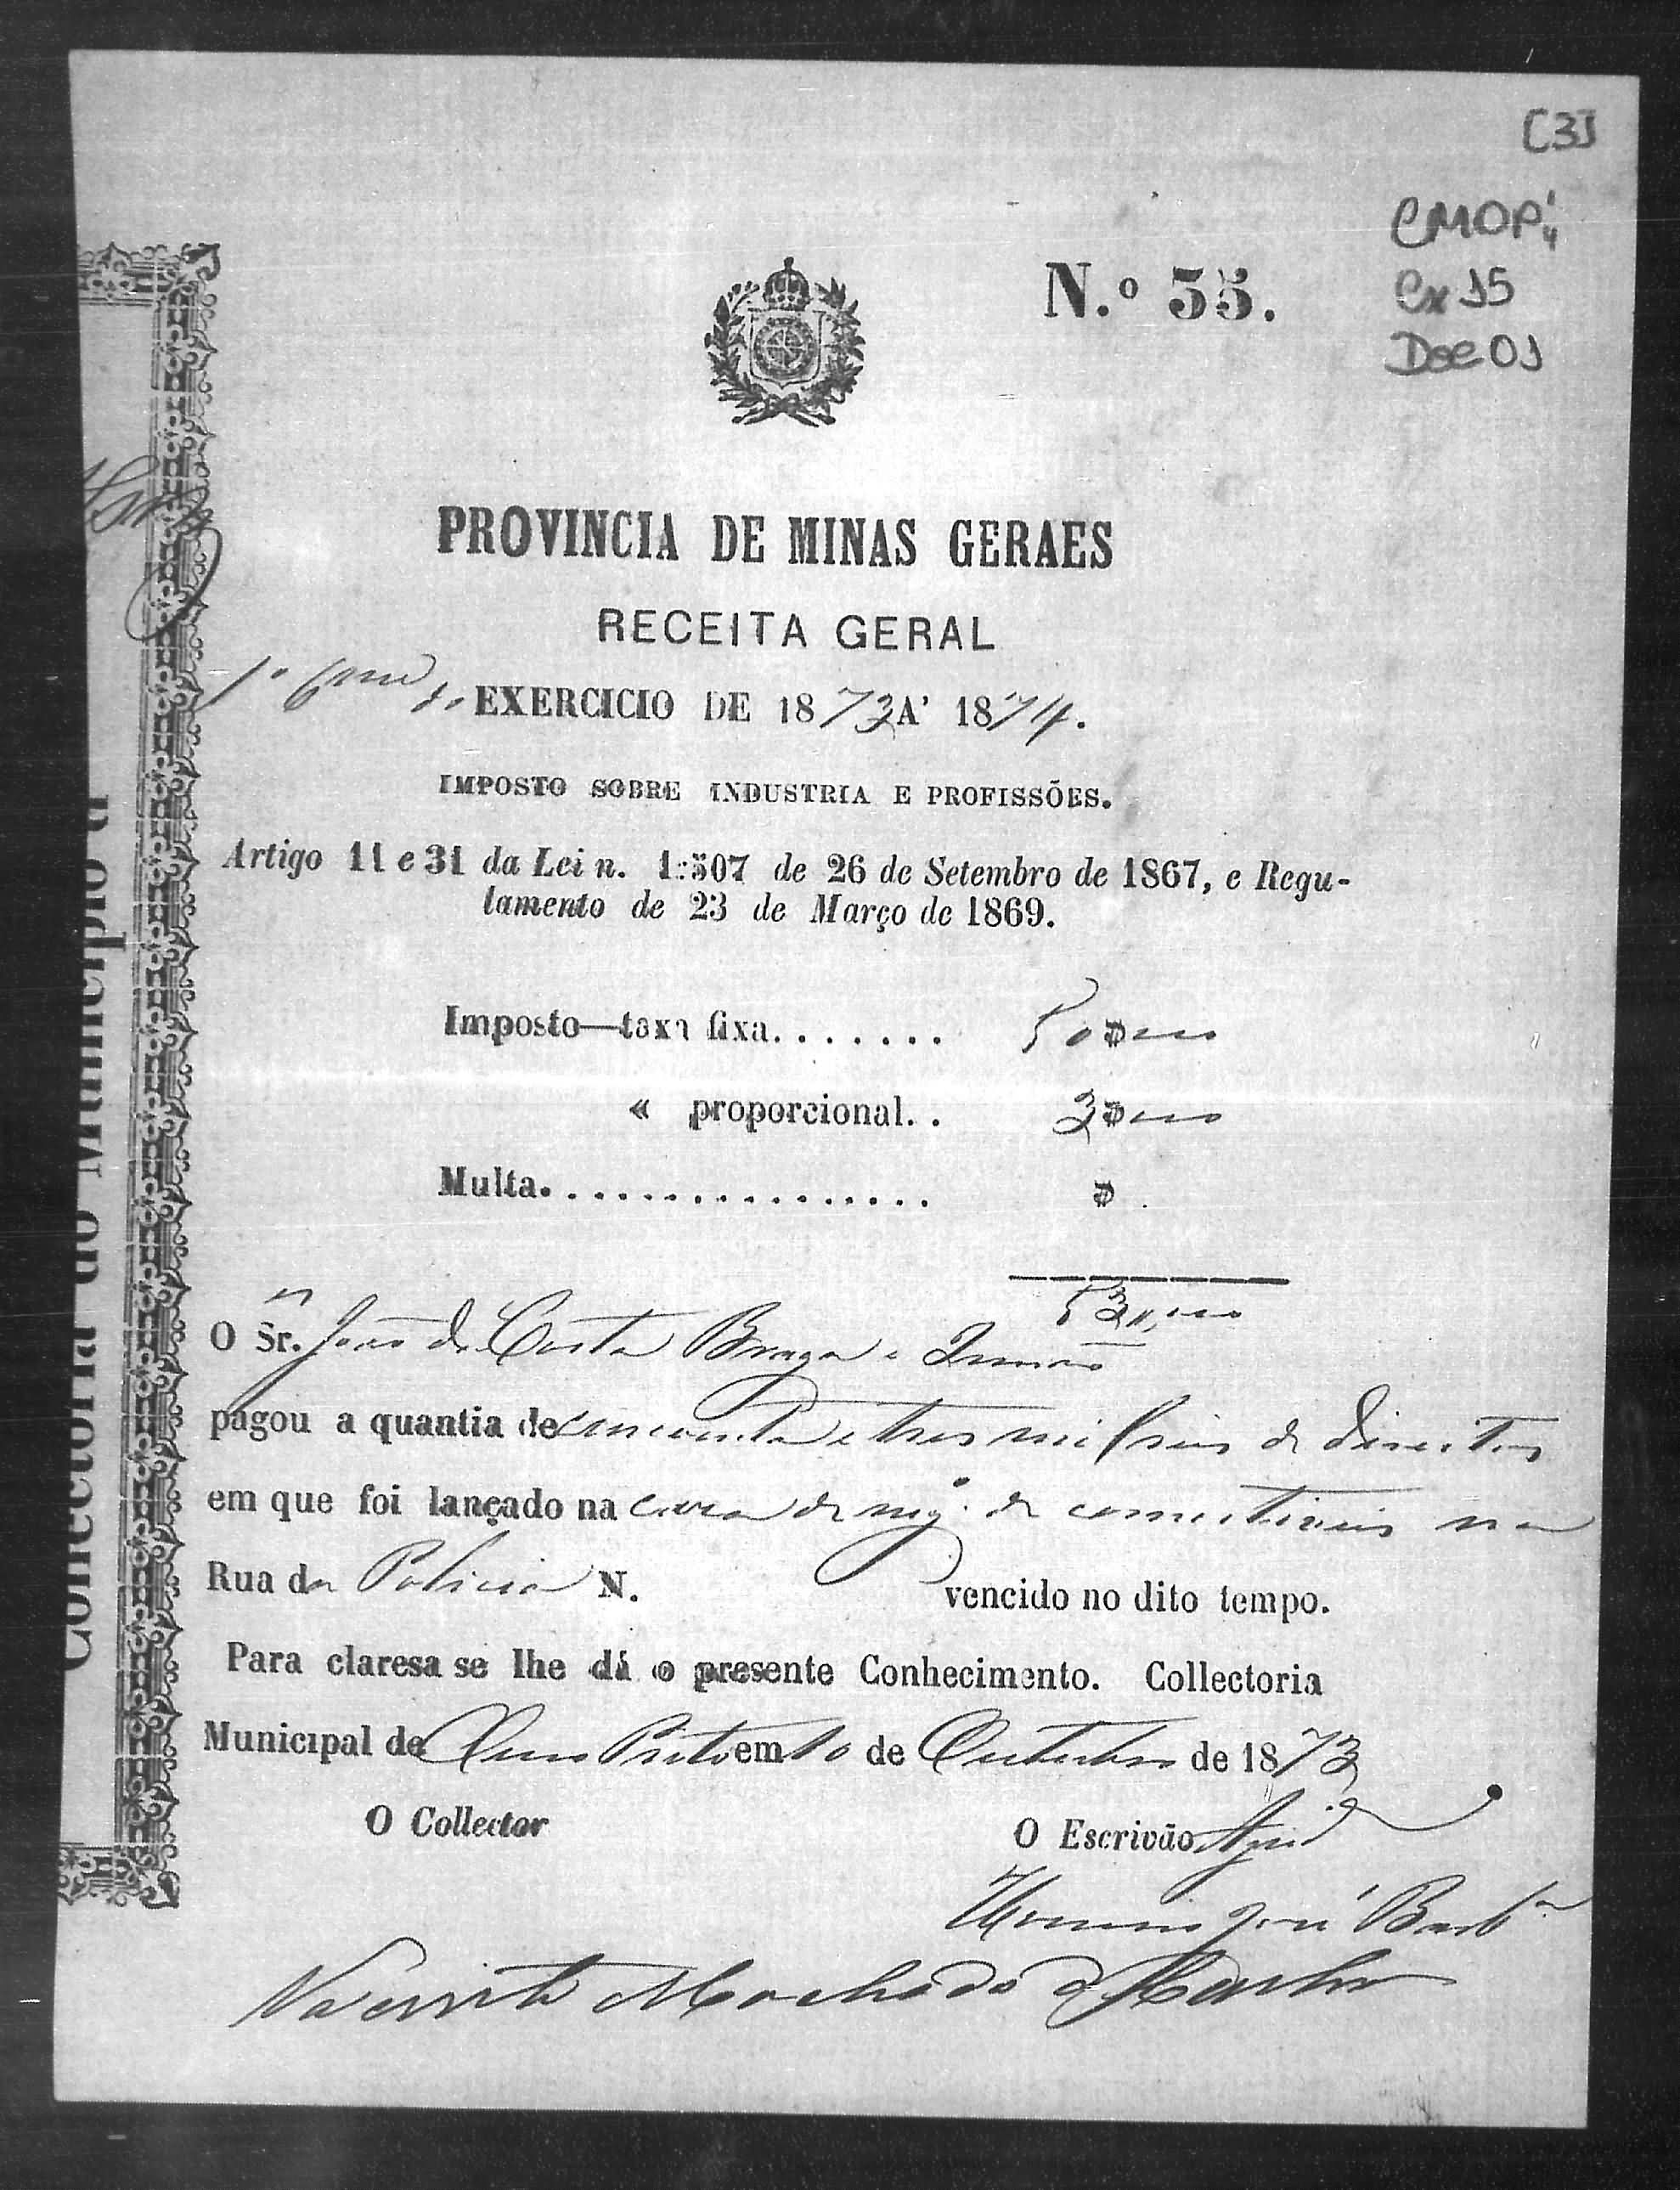 [3]
CMOP
Cx 15
Doc 01
N.º 55.
PROVINCIA DE MINAS GERAES
RECEITA GERAL
1º EXERCICIO DE 1873 A' 1874.
IMPOSTO SOBRE INDUSTRIA E PROFISSÕES.
Artigo 11 e 31 da Lei n. 1:507 de 26 de Setembro de 1867, e Regu-
lamento de 23 de Março de 1869.
Imposto—taxa fixa....... 50$000
« proporcional.. 3$000
Multa................ $
53,,000
O Sr. João da Costa Braga e Irmão
pagou a quantia de cincoenta e tres mil reis de direitos
em que foi lançado na casa de neg.º de comestiveis na
Rua da Policia N. vencido no dito tempo.
Para claresa se lhe dá o presente Conhecimento. Collectoria
Municipal de Ouro Preto em 10 de Outubro de 1873
O Collector
O Escrivão
José Barb.ª
Machado de
Collectoria do Municipio d